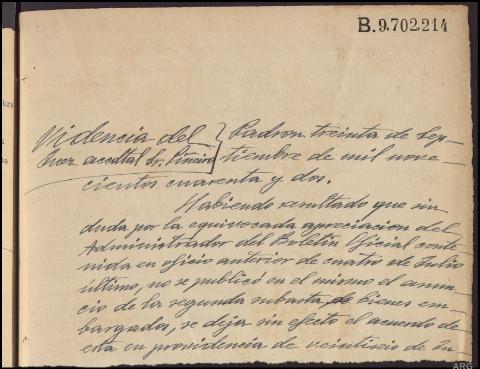 B.9.702.214
Videncia del } Padron treinta de Sep-
Juez accdtal Sr. Piñeiro } tiembre de mil nove-
cientos cuarenta y dos.
Habiendo resultado que sin
duda por la equivocada apreciacion del
Administrador del Boletin Oficial conte-
nida en oficio anterior de cuatro de Julio
último, no se publicó en el mismo el anun-
cio de la segunda subasta de bienes em-
bargados, se deja sin efecto el acuerdo de
esta en providencia de veintiseis de Ju-
ARG